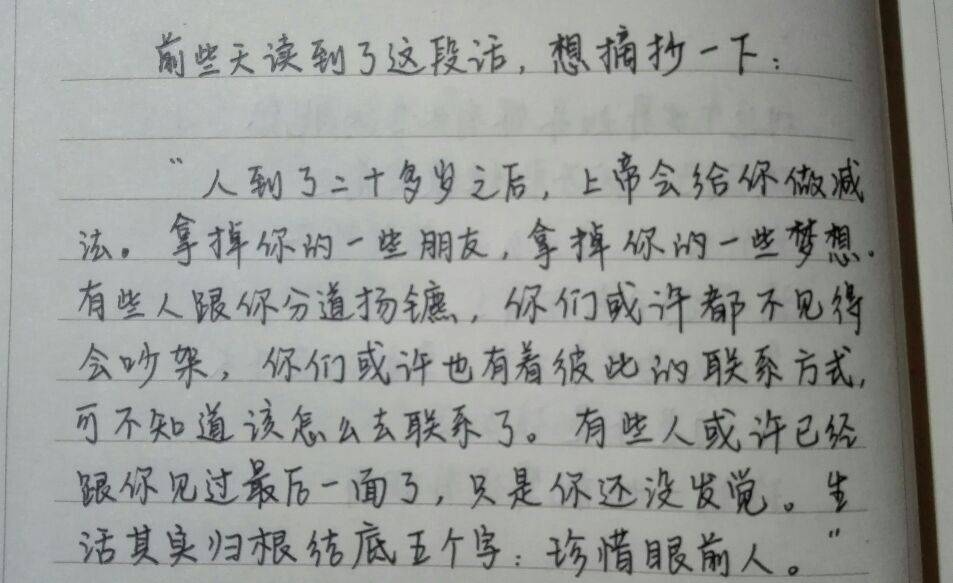 前些天读到了这段话，想摘抄一下：
“人到了二十多岁之后，上帝会给你做减
法。拿掉你的一些朋友，拿掉你的一些梦想.
有些人跟你分道扬镳，你们或许都不见得
会吵架，你们或许也有着彼此的联系方式，
可不知道该怎么去联系了。有些人或许已经
跟你见过最后一面了，只是你还没发觉。生
活其实归根结底五个字：珍惜眼前人。”